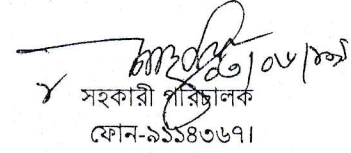 সহকারী পরিচালক
ফোন-৯১১৪৩৬৭।